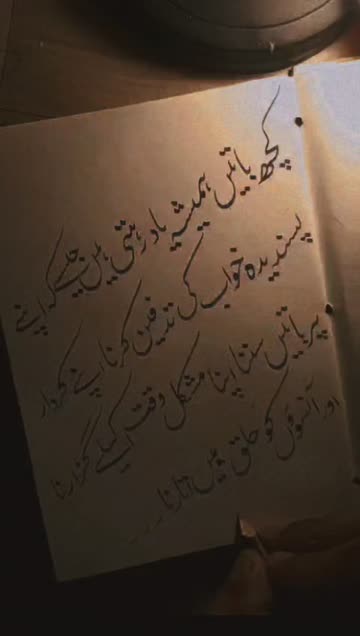 کچھ باتیں ہمیشہ یاد رہتی ہیں جیسے کہ اپنے
پسندیدہ خواب کی تدفین کرنا اپنے کردار
پر باتیں سننا اپنا مشکل وقت اکیلے گزارنا
اور آنسوؤں کو حلق میں اتارنا...